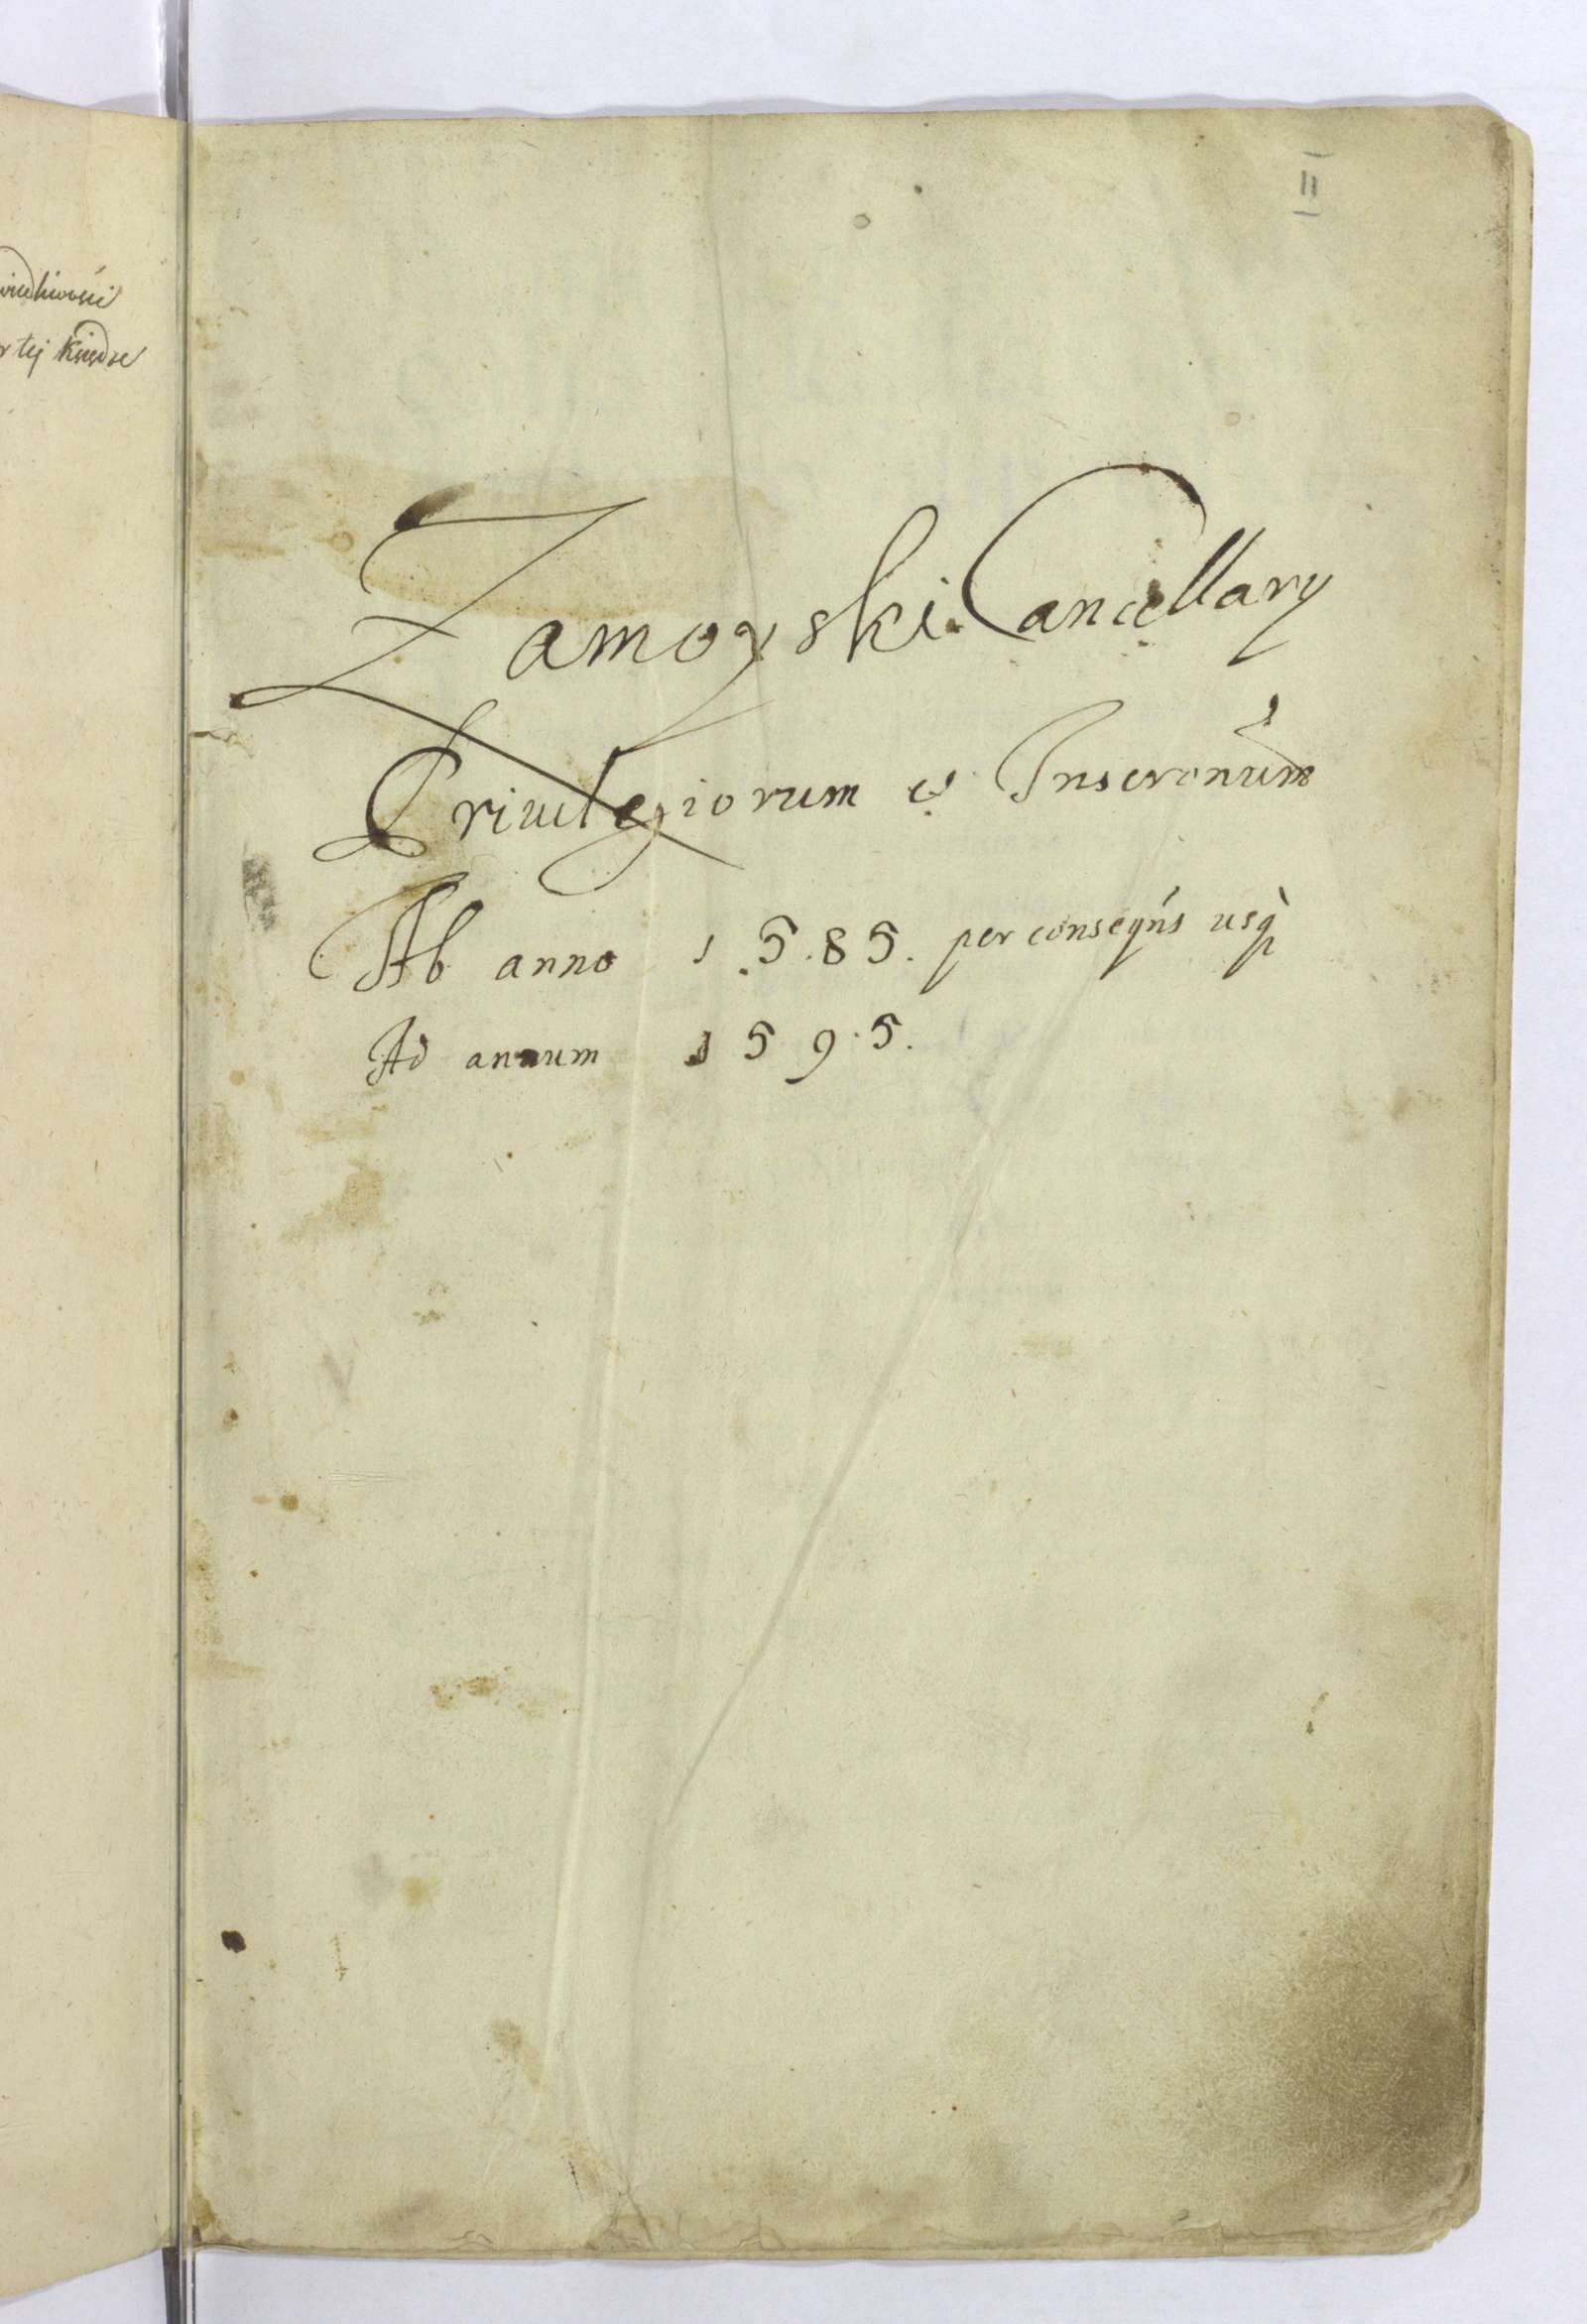 tej Księdze
II
Zamoyski Cancellarÿ
Priuilegiorum et Inscronum
Ab anno 1.5.85. per conseqns usq
Ad annum 1 5 9.5.